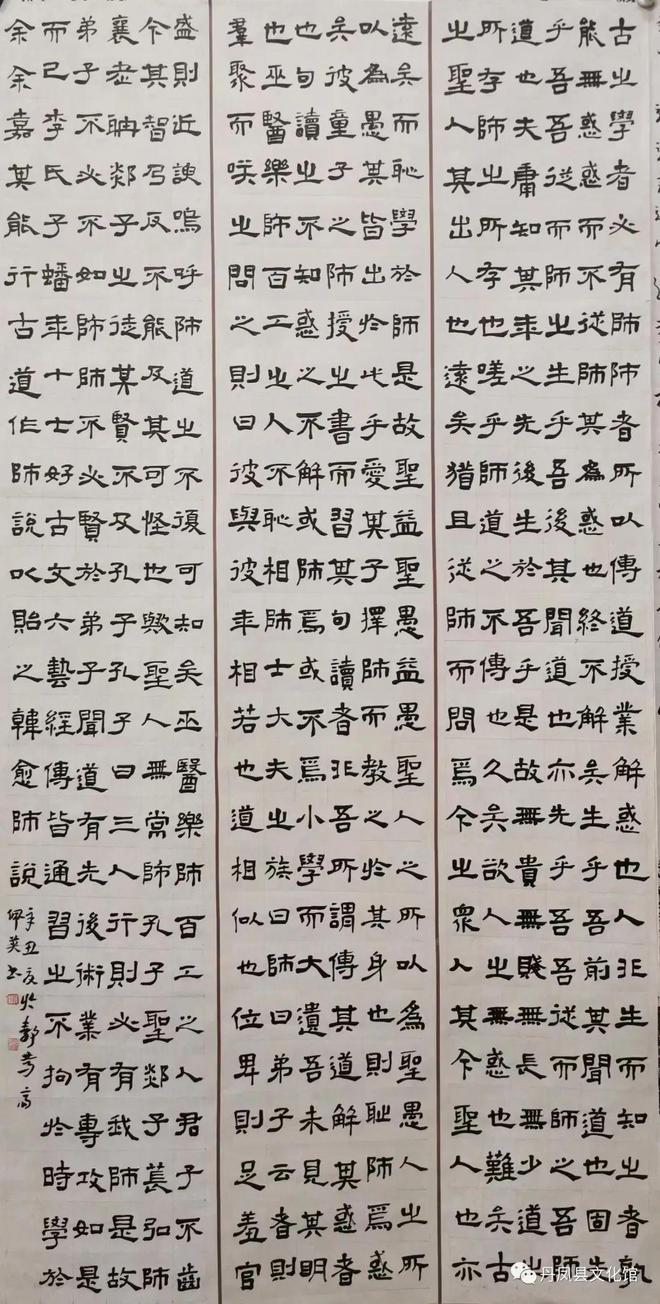 古之學者必有師師者所以傳道授業解惑也人非生而知之者孰
能無惑惑而不從師其為惑也終不解矣生乎吾前其聞道也固先
乎吾吾從而師之生乎吾後其聞道也亦先乎吾吾從而師之吾師
道也夫庸知其年之先後生於吾乎是故無貴無賤無長無少道之
所存師之所存也嗟乎師道之不傳也久矣欲人之無惑也難矣古
之聖人其出人也遠矣猶且從師而問焉今之眾人其今聖人也亦
遠矣而恥學於師是故聖益聖愚益愚聖人之所以為聖愚人之所
以為愚其皆出於此乎愛其子擇師而教之於其身也則恥師焉惑
矣彼童子之師授之書而習其句讀者非吾所謂傳其道解其惑者
也句讀之不知惑之不解或師焉或不焉小學而大遺吾未見其明
也巫醫樂師百工之人不恥相師士大夫之族曰師曰弟子云者則
羣聚而笑之問之則曰彼與彼年相若也道相似也位卑則足羞官
盛則近諛嗚呼師道之不復可知矣巫醫樂師百工之人君子不齒
今其智乃反不能及其可怪也歟聖人無常師孔子聖郯子萇弘師
襄老聃郯子之徒其賢不及孔子孔子曰三人行則必有我師是故
弟子不必不如師師不必賢於弟子聞道有先後術業有專攻如是
而已李氏子蟠年十七好古文六藝經傳皆通習之不拘於時學於
余余嘉其能行古道作師說以貽之韓愈師說
辛丑夏於
英书
丹凤县文化馆